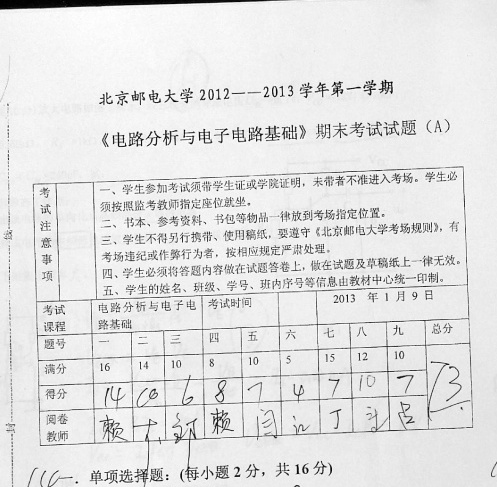 北京邮电大学 2012——2013 学年第一学期
《电路分析与电子电路基础》期末考试试题（A）
考试注意事项
一、学生参加考试须带学生证或学院证明，未带者不准进入考场。学生必
须按照监考教师指定座位就坐。
二、书本、参考资料、书包等物品一律放到考场指定位置。
三、学生不得另行携带、使用稿纸，要遵守《北京邮电大学考场规则》，有
考场违纪或作弊行为者，按相应规定严肃处理。
四、学生必须将答题内容做在试题答卷上，做在试题及草稿纸上一律无效。
五、学生的姓名、班级、学号、班内序号等信息由教材中心统一印制。
考试课程 电路分析与电子电路基础 考试时间 2013 年 1 月 9 日
题号 一 二 三 四 五 六 七 八 九 总分
满分 16 14 10 8 10 5 15 12 10
得分 14 10 6 8 7 4 7 10 7 73
阅卷教师 赖 赖 闫 丁
一. 单项选择题：(每小题 2 分，共 16 分)